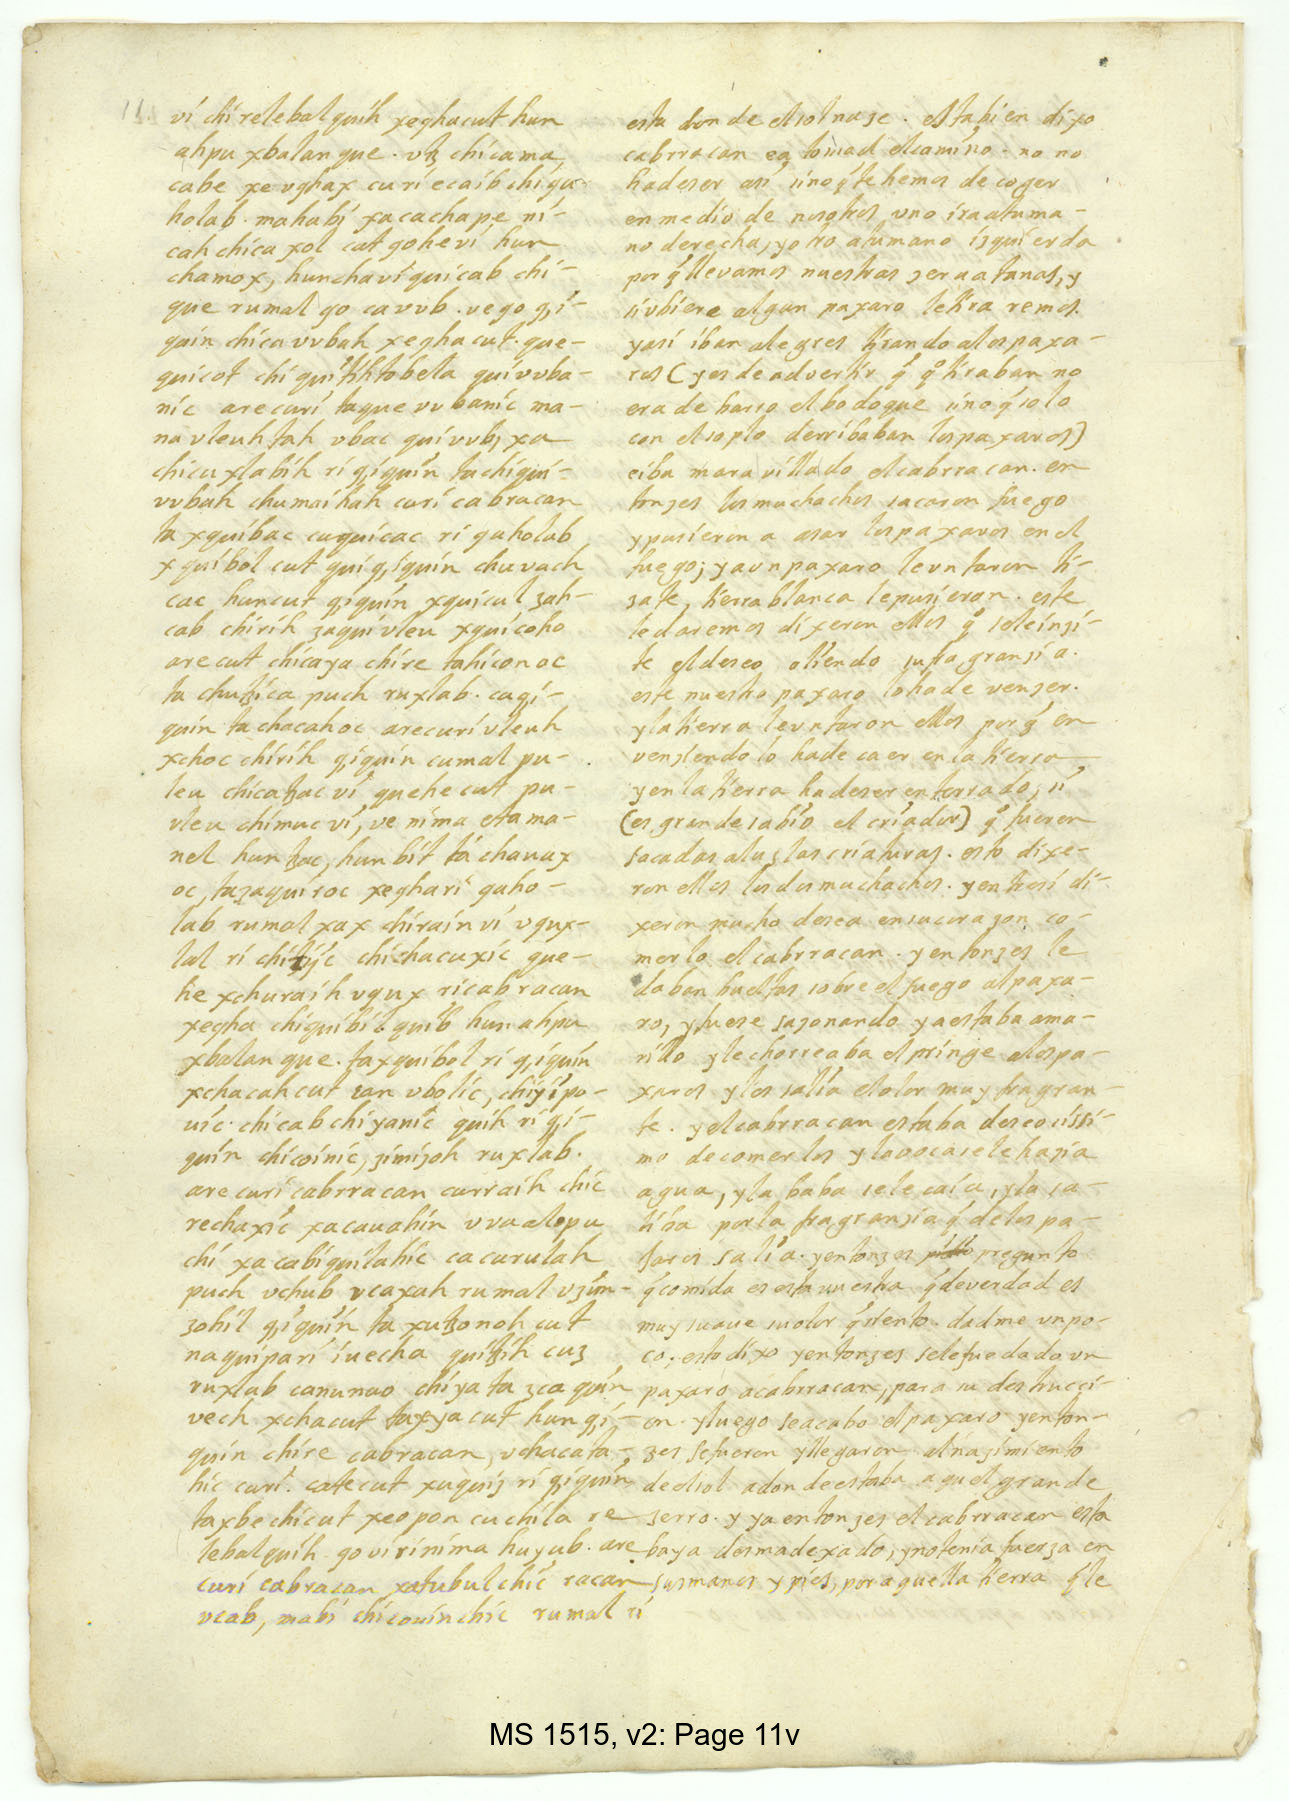 11.
vi chi relebal quih xeghacut hun
ahpu xbalanque. vtz chicama,
cabe xe vghax curi ecaib chi qa
holab. mahabi xa cachape ni-
cah chica xol cat goheui hun
cha mox, hun cha viquicab chi-
que rumal go ca vvb. ve go q,i-
quin chica vvbah xeghacut. que-
quicot chi quitihtobela qui vvba-
nic are curi taque vvbanic ma-
na vleuh tah vbac qui vvb, xa
chicuxlabih ri q,iquin ta chiqui-
vvbah chumaihah curi cabracan
ta xquibac cuquicac ri qaholab
xquibol cut qui q,iquin chuvach
cac huncut q,iquin xquicul zah-
cab chirih zaqui vleu xquicoho
arecut chicaya chire tahiconoc
ta chutzica puch ruxlab. ca q,i-
quin ta chacahoc are curi vleuh
xchoc chirih q,iquin cumal pu-
leu chicatzac vi quehe cut pu-
vleu chimuc vi, ve nima etama-
nel hun tzac, hun bit ta chauax
oc, ta zaquiroc xegha ri qaho-
lab rumal xax chirain vi vqux-
lal ri chitijc chichacuxic que-
he xchuraih vqux ri cabracan
xegha chiquibil quib hun ahpu
xbalanque. ta xquibol ri q,iquin
xchacah cut zan vbolic, chiyipo-
uic. chicab chiyanic quih ri q,i-
quin chicoinic, zimizoh ruxlab.
are curi cabrracan curraih chic
rechaxic xacauahin vvaalopu
chi xacabiquitahic cacarulah
puch vchub vcaxah rumal vzim-
zohil q,iquin ta xutzonoh cut
naquipari iuecha quitzih cuz
ruxlab canunao chiyata zcaquin
vech xchacut taxyacut hun q,i-
quin chire cabracan, vchacata-
hic curi. catecut xuquiz ri q,iquin
taxbe chicut xeopon cuchila re
lebal quih go vi ri nima huyub. are
curi cabracan xatubul chic racan
vcab, mabi chicouinchic rumal ri
esta donde el sol naze. esta bien dixo
cabrracan ea tomad el camino. no no
ha de ser asi sino q̃ te hemos de coger
en medio de nosotros uno ira atuma-
no derecha, y otro atumano izquierda
por q̃ llevamos nuestras zeruatanas, y
si ubiere algun paxaro letira remos.
y asi iban alegres tirando alos paxa-
ros (y es de advertir q̃ qo tiraban no
era de barro el bodoque sino q̃ solo
con el soplo derribaban los paxaros)
e iba maravillado el cabrracan. en
tonzes los muchachos sacaron fuego
y pusieron a asar los paxaros en el
fuego; y a un paxaro le vntaron ti-
zate, tierra blanca le pusieron. este
le daremos dixeron ellos qo se le inzi-
te el deseo oliendo su fragranzia.
este nuestro paxaro lo ha de venzer.
y la tierra le vntaron ellos por q̃ en
venziendolo ha de caer en la tierra
y en la tierra ha de ser enterrado; si
(es grande sabio el criador) qo fueron
sacadas a luz las criaturas. esto dixe-
ron ellos los dos muchachos. y entresi di-
xeron mucho desea en su corazon co-
merlo el cabrracan. y entonzes le
daban bueltas sobre el fuego al paxa-
ro, y fuese sazonando y a estaba ama-
rillo y le chorreaba el pringe alos pa-
xaros y les salia el olor muy fragran-
te. y el cabrracan estaba deseosissi-
mo de comerlos y la boca se le hazia
agua, y la baba se le caia, y la sa-
liva por la fragranzia q̃ de los pa-
xaros salia. y entonzes pregunto
q̃ comida es esta vuestra q̃ de verdad es
muy suave su olor q̃ siento. dadme vn po-
co; esto dixo y entonzes se le fue dado vn
paxaro a cabrracan, para su destrucci-
on. y luego se acabo el paxaro y enton-
zes se fueron y llegaron al nazimiento
del sol adonde estaba aquel grande
zerro. y ya entonzes el cabrracan esta
ba ya desmadexado, y no tenia fuerza en
sus manos y pies, por aquella tierra q̃ le
MS 1515, v2: Page 11v